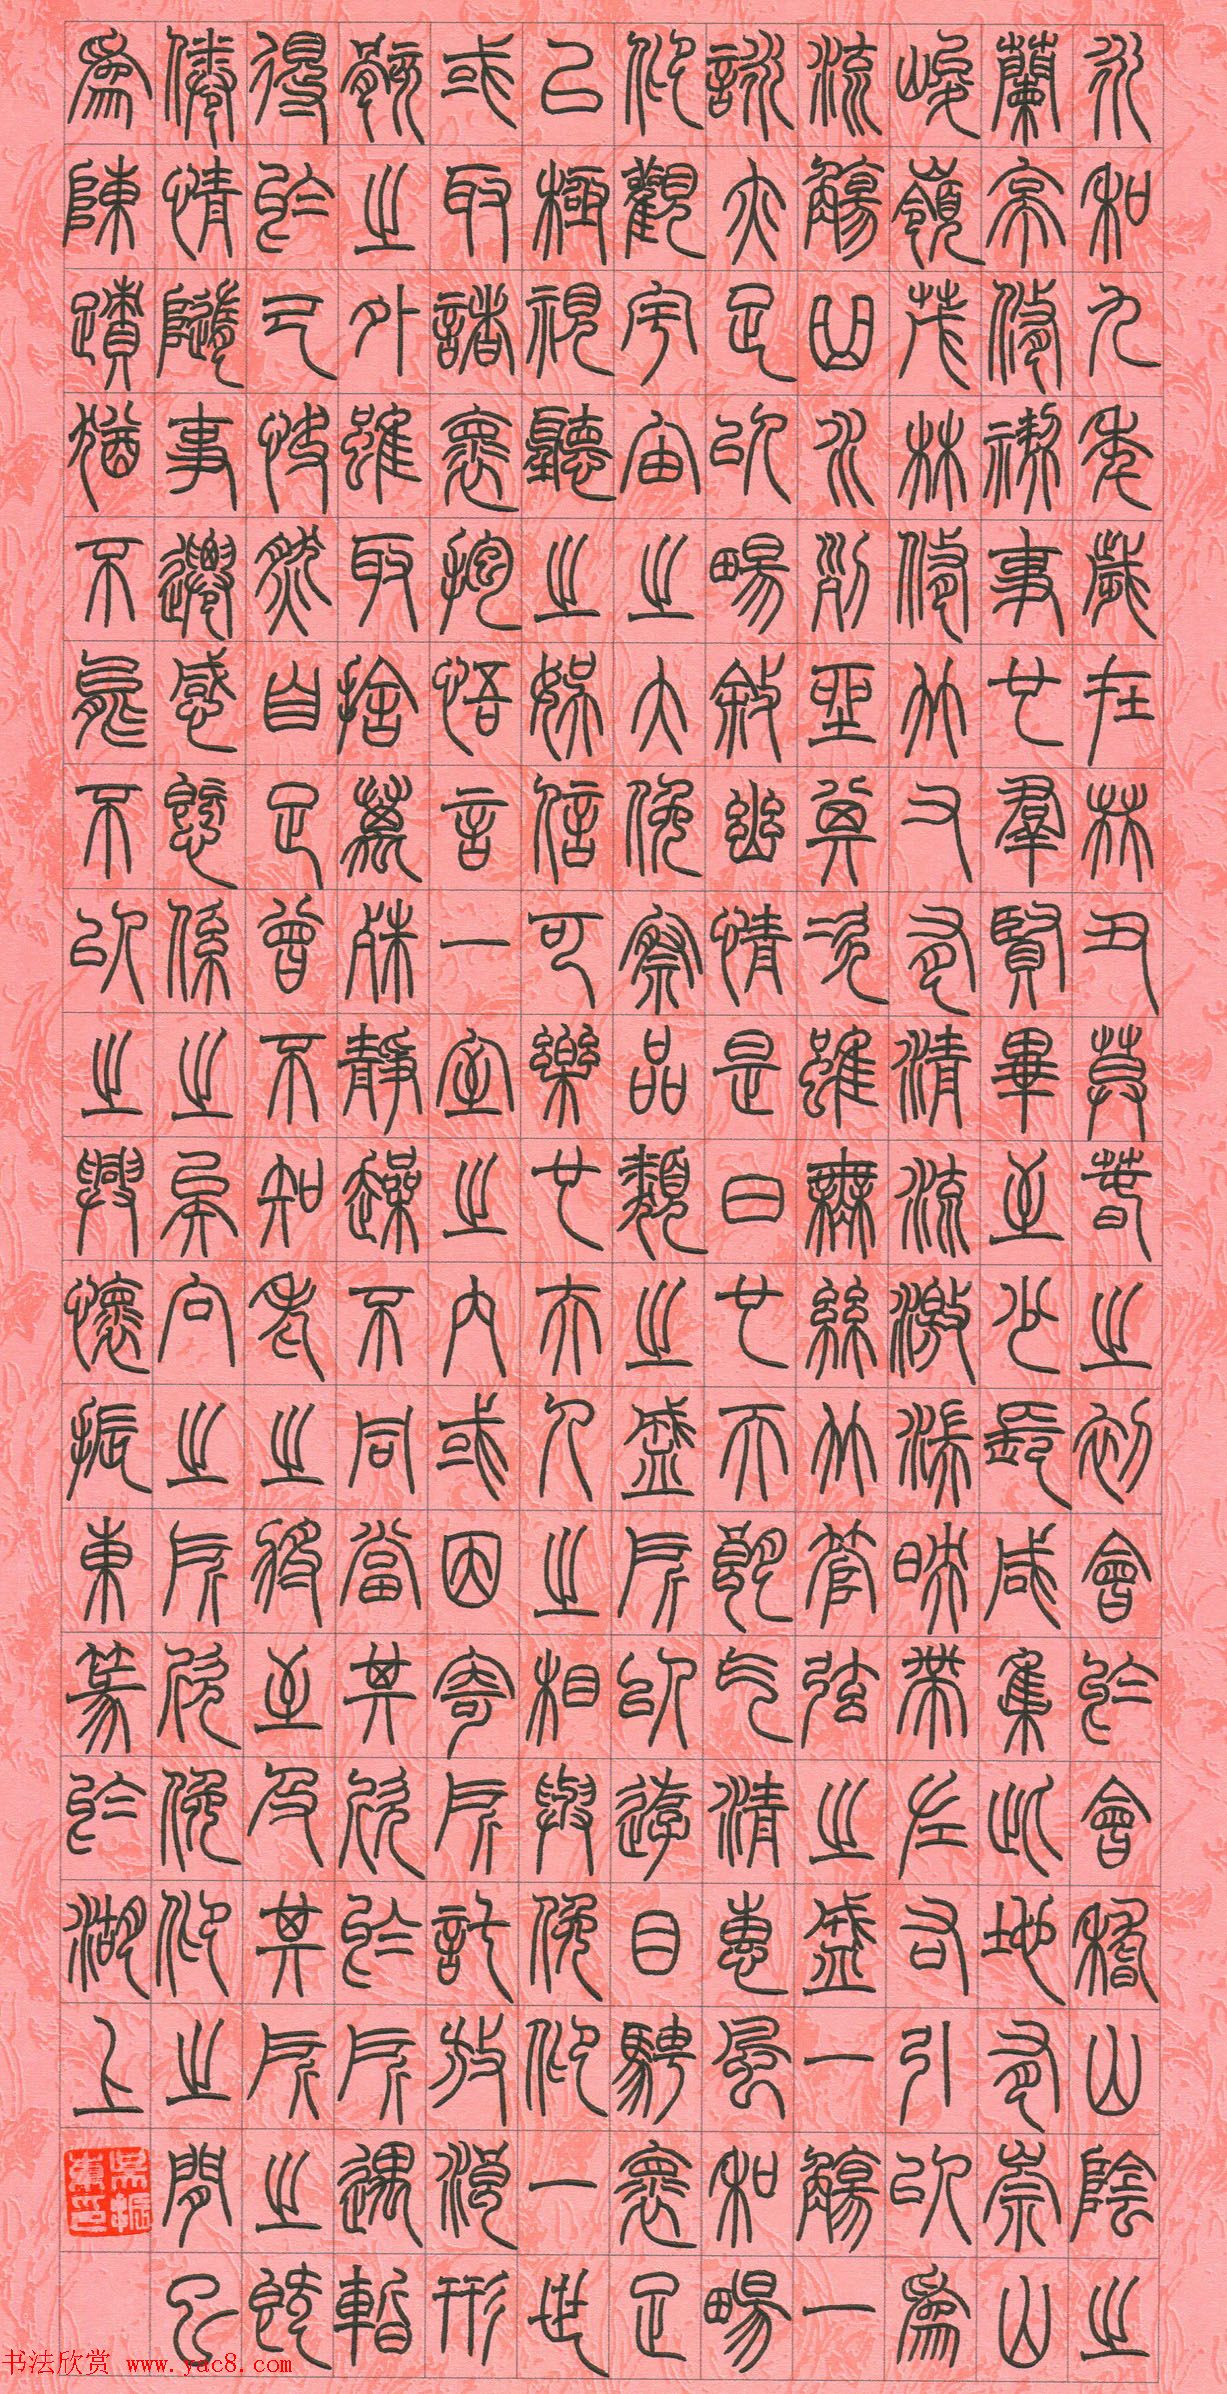 永和九年歲在癸丑莫春之初會於會稽山陰之
蘭亭修禊事也羣賢畢至少長咸集此地有崇山
峻嶺茂林修竹又有清流激湍映帶左右引以爲
流觴曲水列坐其次雖無絲竹管弦之盛一觴一
詠亦足以暢敘幽情是日也天朗氣清惠風和暢
仰觀宇宙之大俯察品類之盛所以遊目騁懷足
以極視聽之娛信可樂也夫人之相與俯仰一世
或取諸懷抱悟言一室之內或因寄所託放浪形
骸之外雖取捨萬殊靜躁不同當其欣於所遇暫
得於己快然自足曾不知老之將至及其所之既
倦情隨事遷感慨係之矣向之所欣俯仰之間已
爲陳蹟猶不能不以之興懷振東篆於湖上
吳振東印
书法欣赏 www.yac8.com